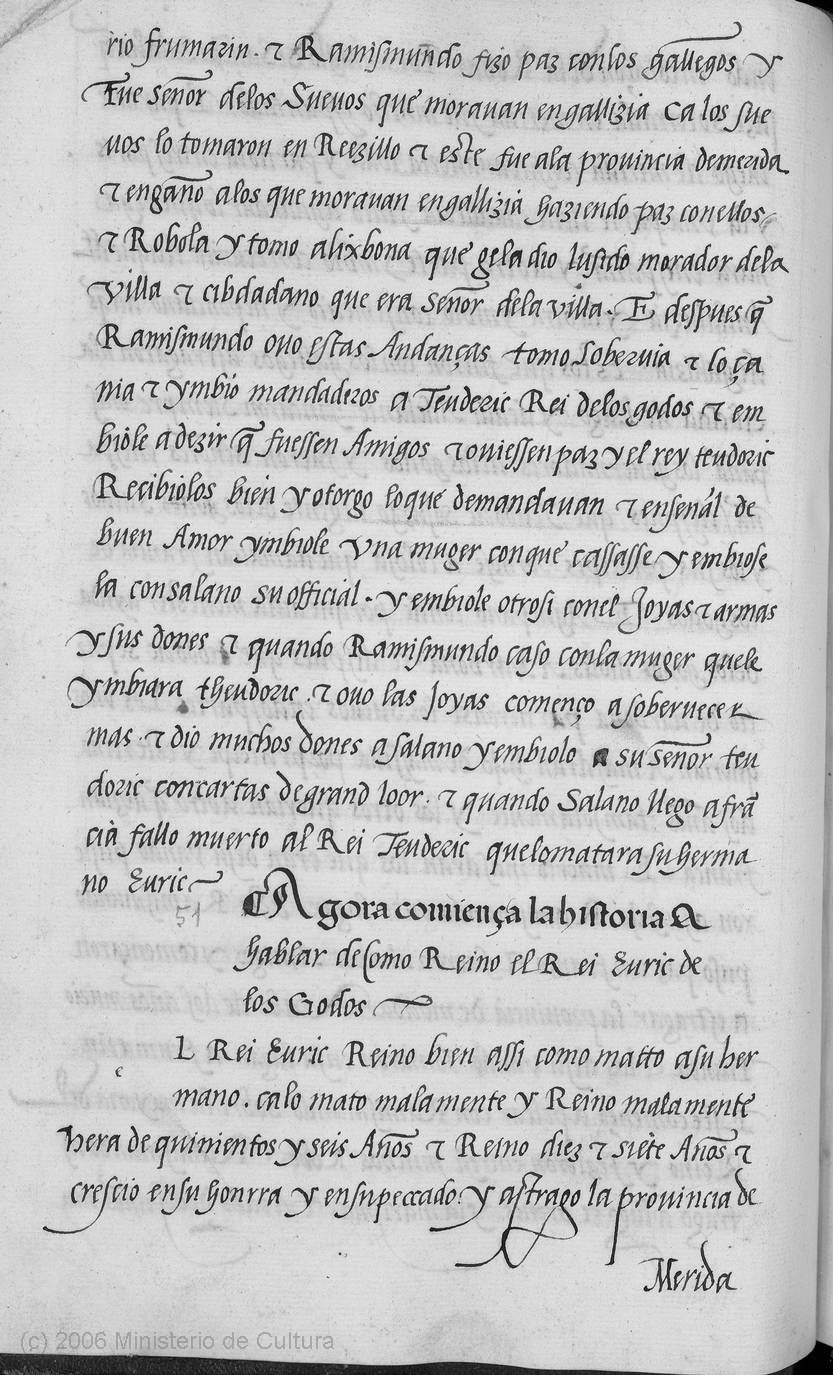 rio frumarin · ⁊ Ramismundo fizo paz conlos gallegos y
Fue señor delos Suevos que moravan engallizia Ca los sue
vos lo tomaron en Reezillo ⁊ este fue ala provincia demerida
⁊ engaño alos que moravan engallizia haziendo paz conellos
⁊ Robola y tomo alixbona que gela dio lusido morador dela
villa ⁊ cibdadano que era señor dela villa · E despues q̃
Ramismundo ovo estas Andanças tomo Sobervia ⁊ loça
nia ⁊ ymbió mandaderos a Teuderic Rei delosgodos ⁊ em
bióle adezir q̃ fuessen Amigos ⁊ oviessen paz y el rey teudoric
Recibiolos bien y otorgo loque demandavan ⁊ enseñal de
buen Amor ymbiole Vna muger conque cassasse y embiose
la consalano su official · y embiole otrosi conel Joyas ⁊ armas
y sus dones ⁊ quando Ramismundo caso conla muger quele
ymbiara theudoric · ⁊ ovo las Joyas començo asobervecer
mas · ⁊ dio muchos dones asalano yembiolo a su señor teu
doric concartas degrand loor · ⁊ quando Salano llego afrã
cia fallo muerto al Rei Teuderic quelomatara su herma
no Euric
51
Agora comiença la historia A
hablar de Como Reino el Rei Euric de
los Godos
e
L Rei Euric Reino bien assi como matto asu her
mano . calo mato malamente y Reino malamente
hera de quinientos y seis Años ⁊ Reino diez ⁊ siete Años ⁊
crescio ensu honrra y ensupeccado · y astrago la provincia de
Merida
(c) 2006 Ministerio de Cultura